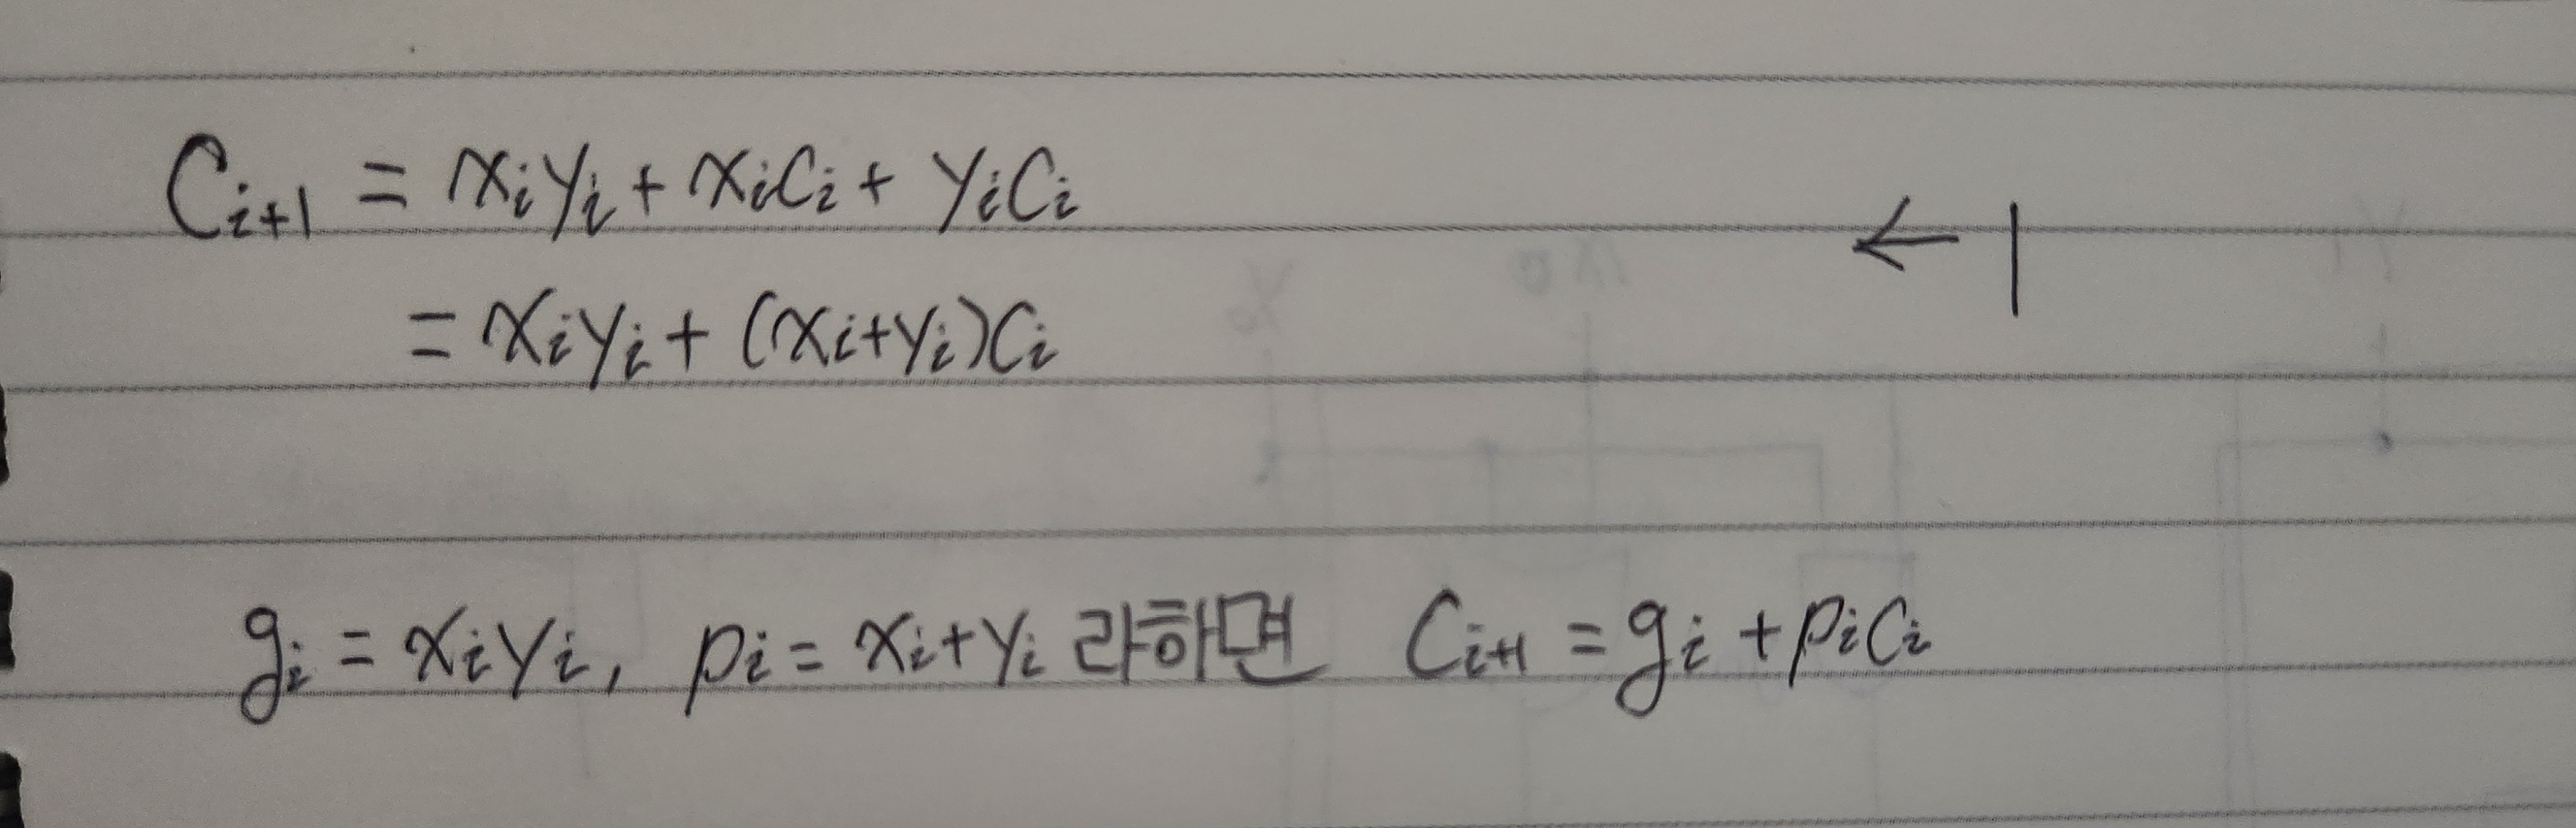 C_{i+1} = x_i y_i + x_i c_i + y_i c_i
= x_i y_i + (x_i + y_i) c_i
← |
g_i = x_i y_i, p_i = x_i + y_i 라하면 C_{i+1} = g_i + p_i c_i